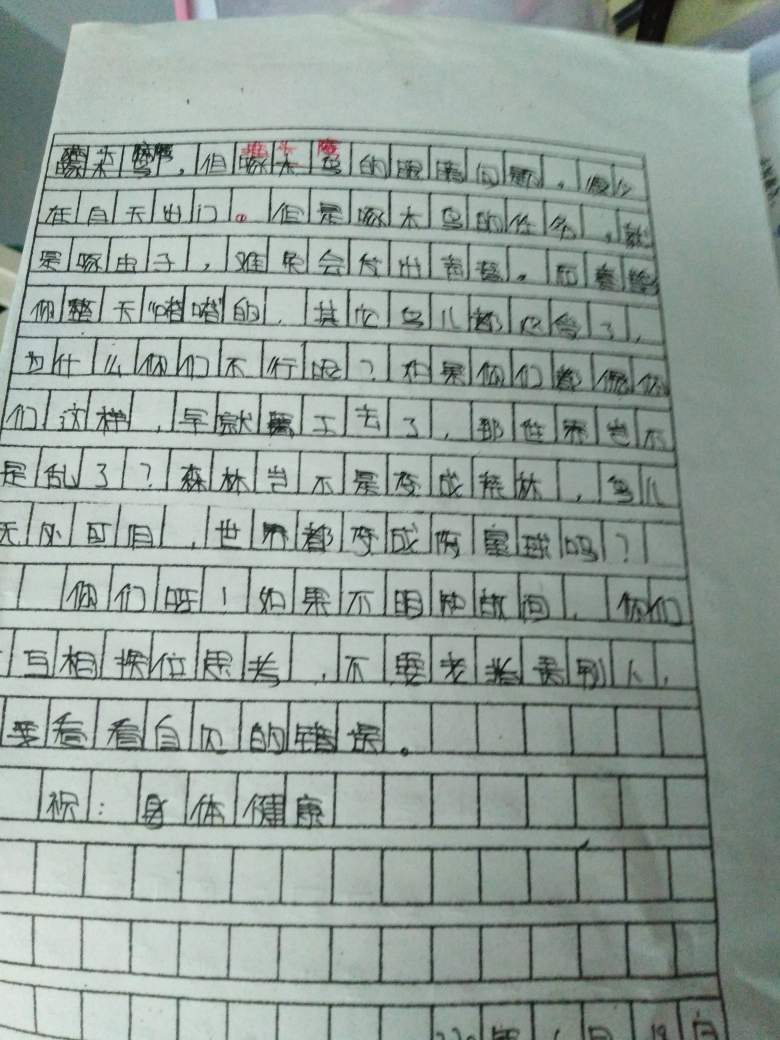 啄木鸟，但猫头鹰的眼睛问题，很少
在白天出门。但是啄木鸟的任务，就
是啄虫子，难免会发出声音。而看
你整天"喳喳"的，其它鸟儿都忍受了，
为什么你们不行呢？如果你们都像你
们这样，早就罢工去了，那世界岂不
是乱了？森林岂不是变成荒林，鸟儿
无处可归，世界都变成灰星球吗？
你们呀！如果不明知故问，你们
互相换位思考，不要老指责别人，
要看看自己的错误。
祝：身体健康
年6月19日